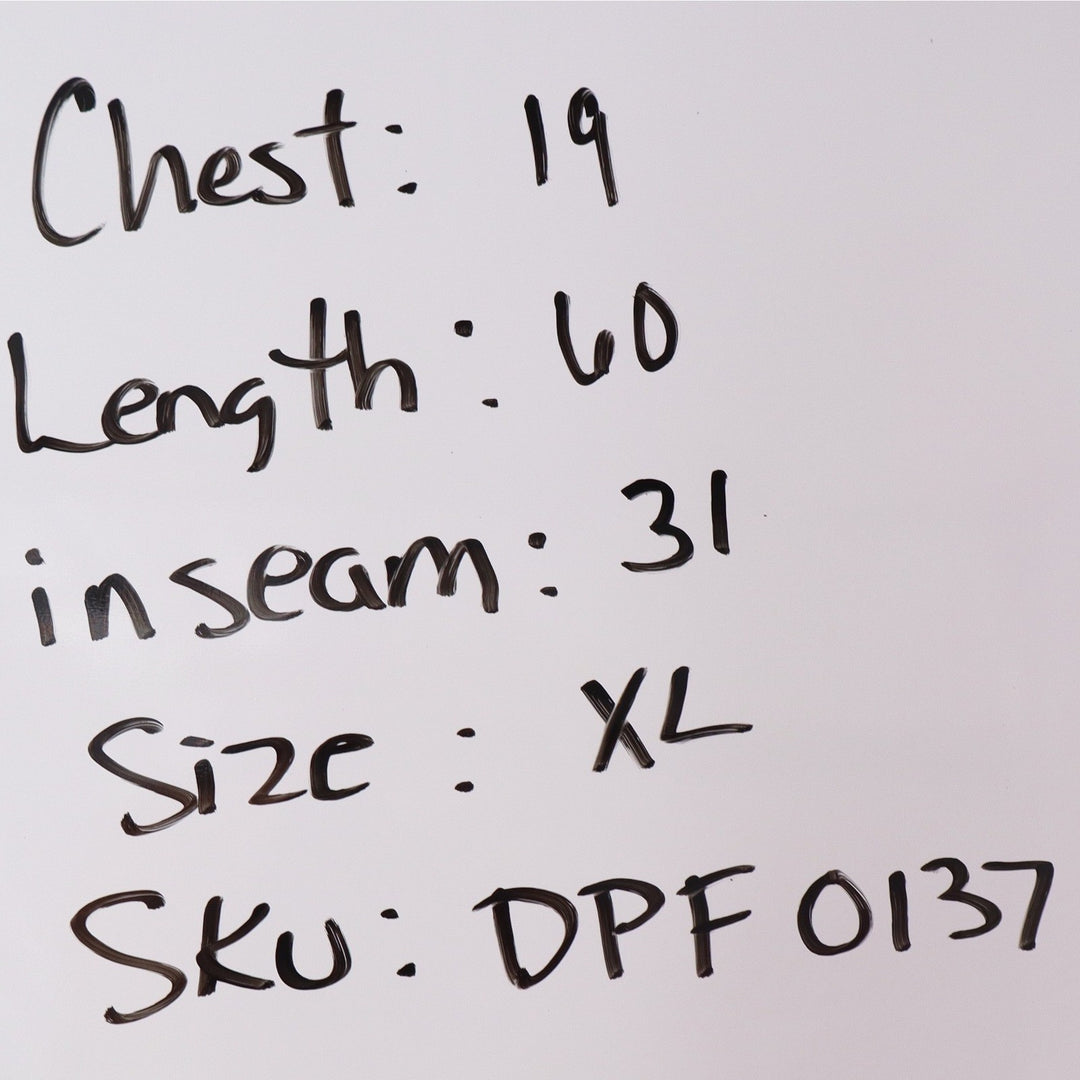 Chest: 19
Length: 60
inseam: 31
Size: XL
SKU: DPF 0137